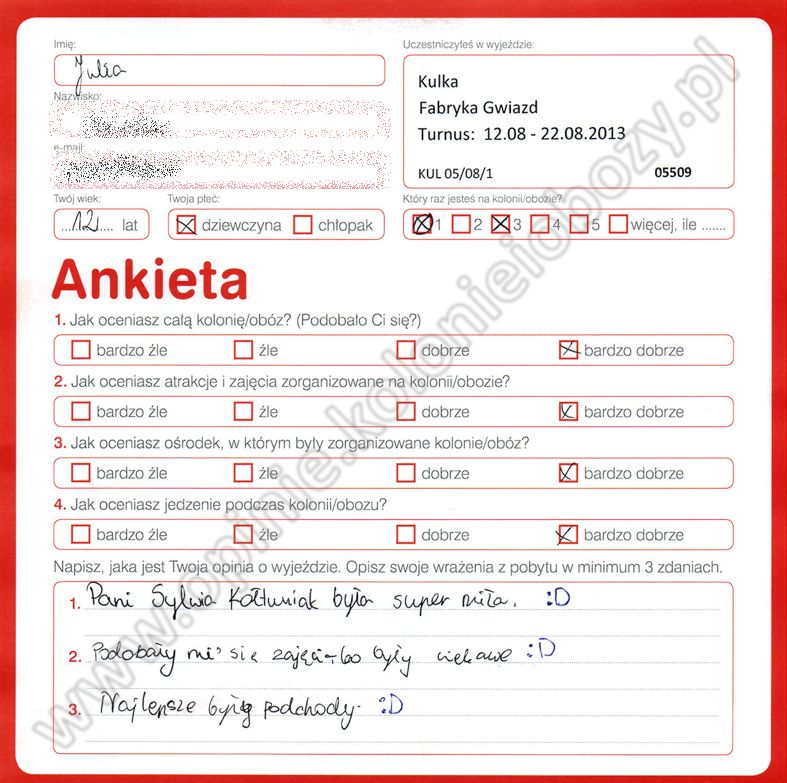 Imię:
Julia
Nazwisko:
e-mail:
Twój wiek:
12 lat
Twoja płeć:
dziewczyna chłopak
Uczestniczyłeś w wyjeździe:
Kulka
Fabryka Gwiazd
Turnus: 12.08 - 22.08.2013
KUL 05/08/1 05509
Który raz jesteś na kolonii/obozie?
1 2 3 4 5 więcej, ile .......
Ankieta
1. Jak oceniasz całą kolonię/obóz? (Podobało Ci się?)
bardzo źle źle dobrze bardzo dobrze
2. Jak oceniasz atrakcje i zajęcia zorganizowane na kolonii/obozie?
bardzo źle źle dobrze bardzo dobrze
3. Jak oceniasz ośrodek, w którym były zorganizowane kolonie/obóz?
bardzo źle źle dobrze bardzo dobrze
4. Jak oceniasz jedzenie podczas kolonii/obozu?
bardzo źle źle dobrze bardzo dobrze
Napisz, jaka jest Twoja opinia o wyjeździe. Opisz swoje wrażenia z pobytu w minimum 3 zdaniach.
1. Pani Sylwia Kołtuniak była super miła. :D
2. Podobały mi się zajęcia, bo były ciekawe :D
3. Najlepsze były podchody. :D
www.opinie.kolonieiobozy.pl